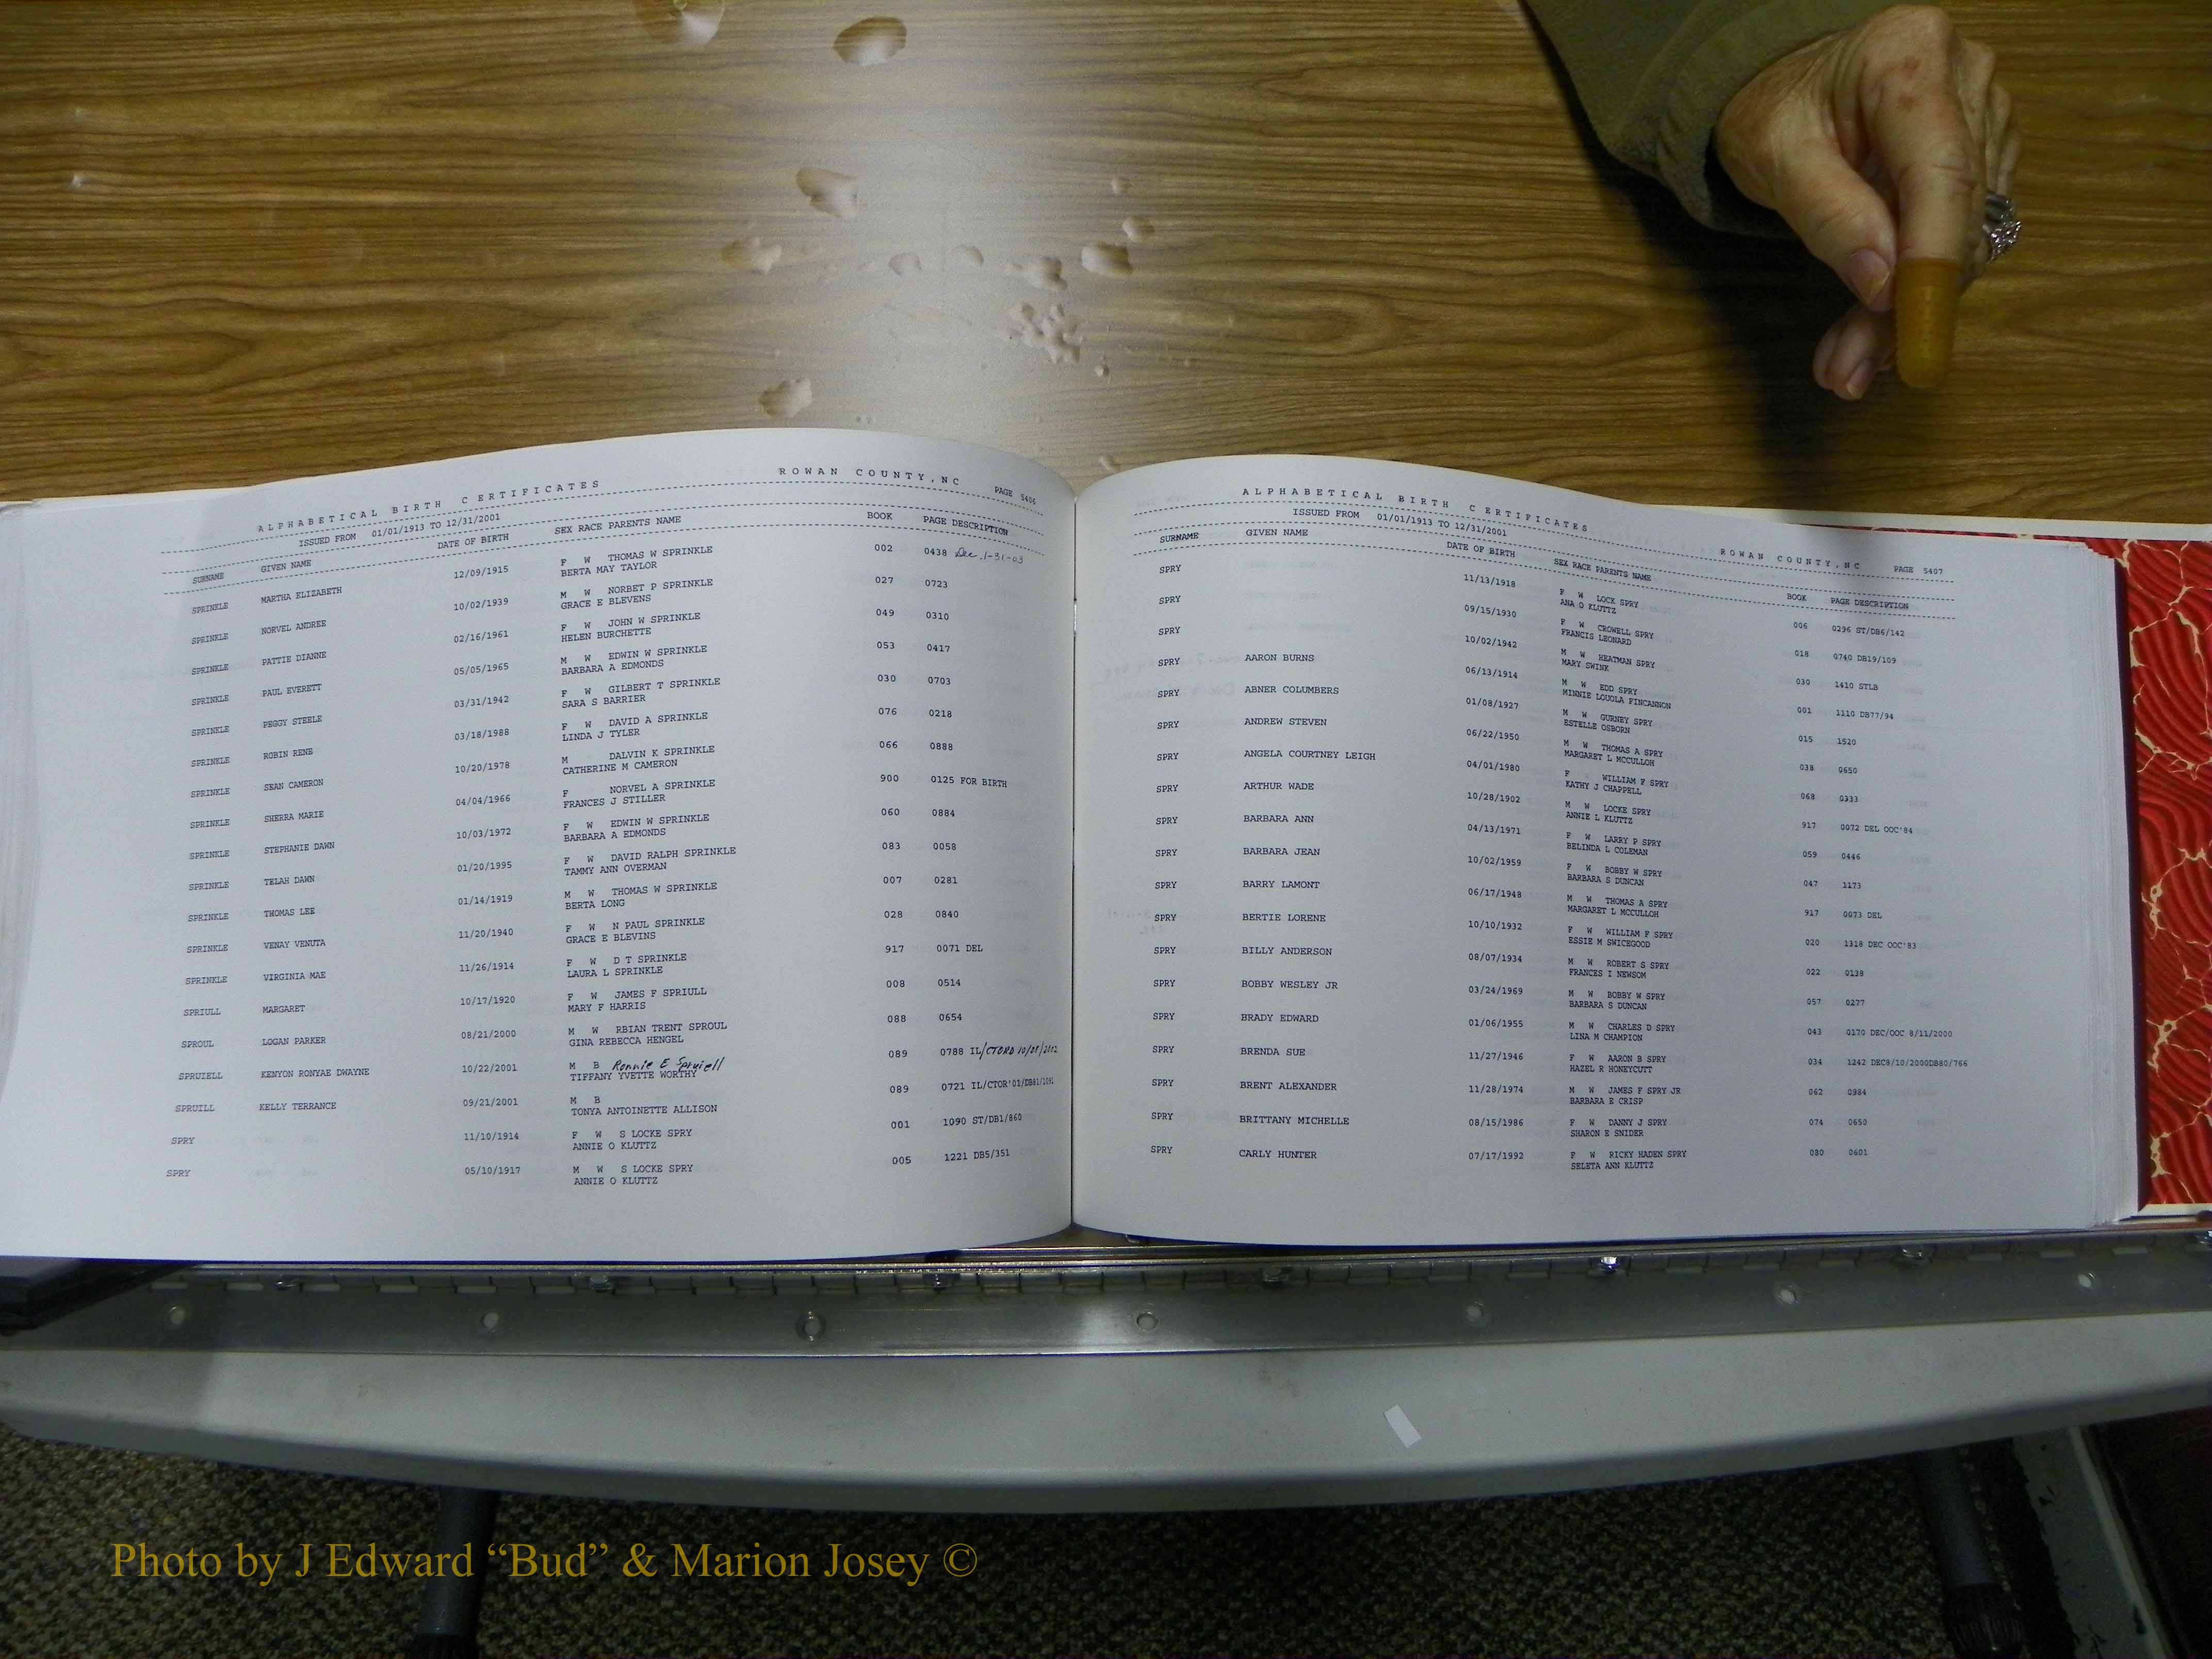 ALPHABETICAL BIRTH CERTIFICATES ROWAN COUNTY, NC PAGE 5406
ISSUED FROM 01/01/1913 TO 12/31/2001
SURNAME GIVEN NAME DATE OF BIRTH SEX RACE PARENTS NAME BOOK PAGE DESCRIPTION
SPRINKLE MARTHA ELIZABETH 12/09/1915 F W THOMAS W SPRINKLE 002 0438 Dec. 1-31-03
BERTA MAY TAYLOR
SPRINKLE NORVEL ANDREE 10/02/1939 M W NORBET P SPRINKLE 027 0723
GRACE E BLEVENS
SPRINKLE PATTIE DIANNE 02/16/1961 F W JOHN W SPRINKLE 049 0310
HELEN BURCHETTE
SPRINKLE PAUL EVERETT 05/05/1965 M W EDWIN W SPRINKLE 053 0417
BARBARA A EDMONDS
SPRINKLE PEGGY STEELE 03/31/1942 F W GILBERT T SPRINKLE 030 0703
SARA S BARRIER
SPRINKLE ROBIN RENE 03/18/1988 F W DAVID A SPRINKLE 076 0218
LINDA J TYLER
SPRINKLE SEAN CAMERON 10/20/1978 M DALVIN K SPRINKLE 066 0888
CATHERINE M CAMERON
SPRINKLE SHERRA MARIE 04/04/1966 F NORVEL A SPRINKLE 900 0125 FOR BIRTH
FRANCES J STILLER
SPRINKLE STEPHANIE DAWN 10/03/1972 F W EDWIN W SPRINKLE 060 0884
BARBARA A EDMONDS
SPRINKLE TELAH DAWN 01/20/1995 F W DAVID RALPH SPRINKLE 083 0058
TAMMY ANN OVERMAN
SPRINKLE THOMAS LEE 01/14/1919 M W THOMAS W SPRINKLE 007 0281
BERTA LONG
SPRINKLE VENAY VENUTA 11/20/1940 F W N PAUL SPRINKLE 028 0840
GRACE E BLEVINS
SPRINKLE VIRGINIA MAE 11/26/1914 F W D T SPRINKLE 917 0071 DEL
LAURA L SPRINKLE
SPRIULL MARGARET 10/17/1920 F W JAMES F SPRIULL 008 0514
MARY F HARRIS
SPROUL LOGAN PARKER 08/21/2000 M W RBIAN TRENT SPROUL 088 0654
GINA REBECCA HENGEL
SPRUIELL KENYON RONYAE DWAYNE 10/22/2001 M B Ronnie E Spruiell 089 0788 IL/CTORD 10/08/2002
TIFFANY YVETTE WORTHY
SPRUILL KELLY TERRANCE 09/21/2001 M B 089 0721 IL/CTOR'01/DB81/1091
TONYA ANTOINETTE ALLISON
SPRY 11/10/1914 F W S LOCKE SPRY 001 1090 ST/DB1/860
ANNIE O KLUTTZ
SPRY 05/10/1917 M W S LOCKE SPRY 005 1221 DB5/351
ANNIE O KLUTTZ
ALPHABETICAL BIRTH CERTIFICATES ROWAN COUNTY, NC PAGE 5407
ISSUED FROM 01/01/1913 TO 12/31/2001
SURNAME GIVEN NAME DATE OF BIRTH SEX RACE PARENTS NAME BOOK PAGE DESCRIPTION
SPRY 11/13/1918 F W LOCK SPRY 006 0296 ST/DB6/142
ANA O KLUTTZ
SPRY 09/15/1930 F W CROWELL SPRY 018 0740 DB19/109
FRANCIS LEONARD
SPRY 10/02/1942 M W HEATMAN SPRY 030 1410 STLB
MARY SWINK
SPRY AARON BURNS 06/13/1914 M W EDD SPRY 001 1110 DB77/94
MINNIE LOUOLA FINCANNON
SPRY ABNER COLUMBERS 01/08/1927 M W GURNEY SPRY 015 1520
ESTELLE OSBORN
SPRY ANDREW STEVEN 06/22/1950 M W THOMAS A SPRY 038 0650
MARGARET L MCCULLOH
SPRY ANGELA COURTNEY LEIGH 04/01/1980 F WILLIAM F SPRY 068 0333
KATHY J CHAPPELL
SPRY ARTHUR WADE 10/28/1902 M W LOCKE SPRY 917 0072 DEL OOC'84
ANNIE L KLUTTZ
SPRY BARBARA ANN 04/13/1971 F W LARRY P SPRY 059 0446
BELINDA L COLEMAN
SPRY BARBARA JEAN 10/02/1959 F W BOBBY W SPRY 047 1173
BARBARA S DUNCAN
SPRY BARRY LAMONT 06/17/1948 M W THOMAS A SPRY 917 0073 DEL
MARGARET L MCCULLOH
SPRY BERTIE LORENE 10/10/1932 F W WILLIAM F SPRY 020 1318 DEC OOC'83
ESSIE M SWICEGOOD
SPRY BILLY ANDERSON 08/07/1934 M W ROBERT S SPRY 022 0138
FRANCES I NEWSOM
SPRY BOBBY WESLEY JR 03/24/1969 M W BOBBY W SPRY 057 0277
BARBARA S DUNCAN
SPRY BRADY EDWARD 01/06/1955 M W CHARLES D SPRY 043 0170 DEC/OOC 8/11/2000
LINA M CHAMPION
SPRY BRENDA SUE 11/27/1946 F W AARON B SPRY 034 1242 DEC8/10/2000DB80/766
HAZEL R HONEYCUTT
SPRY BRENT ALEXANDER 11/28/1974 M W JAMES F SPRY JR 062 0984
BARBARA E CRISP
SPRY BRITTANY MICHELLE 08/15/1986 F W DANNY J SPRY 074 0650
SHARON E SNIDER
SPRY CARLY HUNTER 07/17/1992 F W RICKY HADEN SPRY 080 0601
SELETA ANN KLUTTZ
Photo by J Edward “Bud” & Marion Josey ©